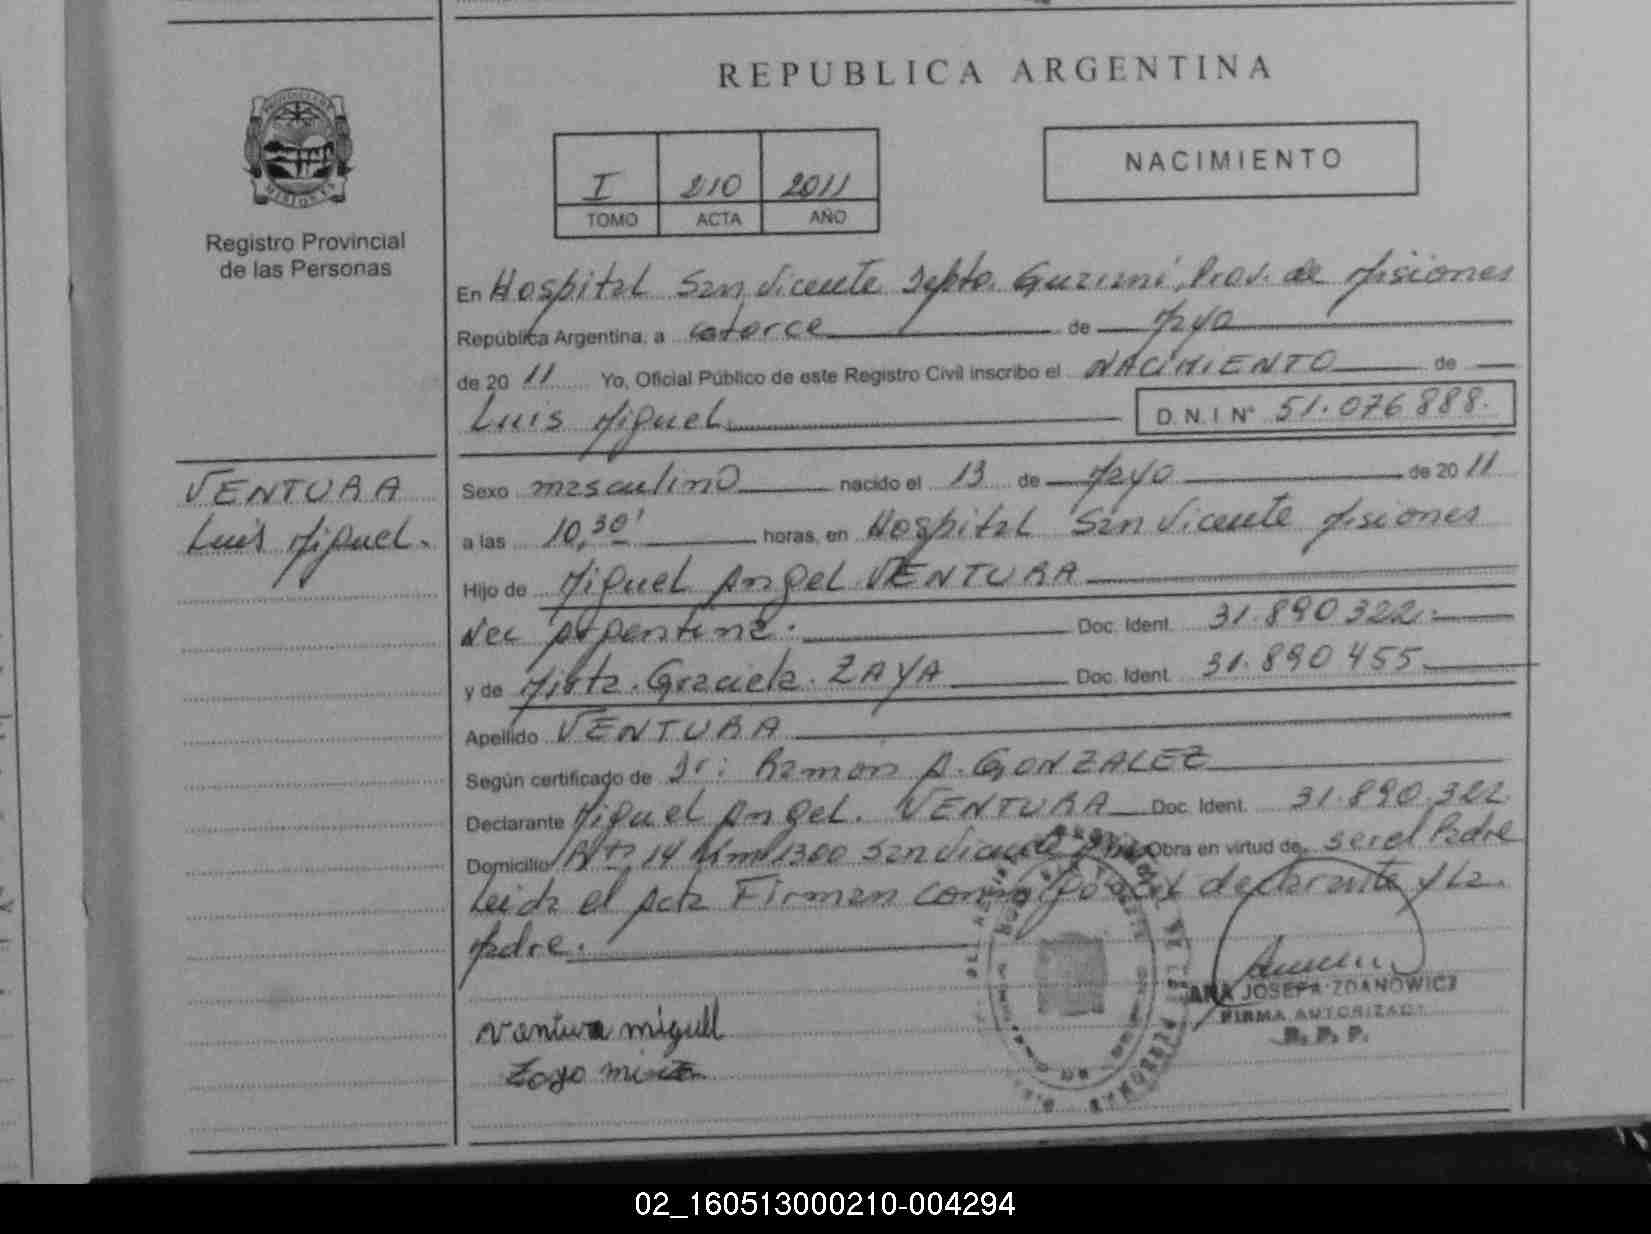 REPUBLICA ARGENTINA
I 210 2011
TOMO ACTA AÑO
NACIMIENTO
MISIONES
Registro Provincial
de las Personas
En Hospital San Vicente Depto. Guarani, Prov. de Misiones
República Argentina, a catorce de Mayo
de 20 11 Yo, Oficial Público de este Registro Civil inscribo el NACIMIENTO de
Luis Miguel D. N. I. N° 51.076.888.
VENTURA
Luis Miguel.
Sexo masculino nacido el 13 de Mayo de 20 11
a las 10,30' horas, en Hospital San Vicente Misiones
Hijo de Miguel Angel VENTURA
Nac Argentina. Doc. Ident. 31.890.322.
y de Mirta. Graciela. ZAYA Doc. Ident. 31.890.455
Apellido VENTURA
Según certificado de Dr: Ramon A. GONZALEZ
Declarante Miguel Angel. VENTURA Doc. Ident. 31.890.322
Domicilio Ruta 14 Km 1300 San Vicente Obra en virtud de ser el Padre
Leida el Acta Firman Conmigo el declarante y La
Madre.
ANA JOSEFA ZDANOWICZ
FIRMA AUTORIZADA
R. P. P.
Ventura miguel
Zaya mirta
02_160513000210-004294